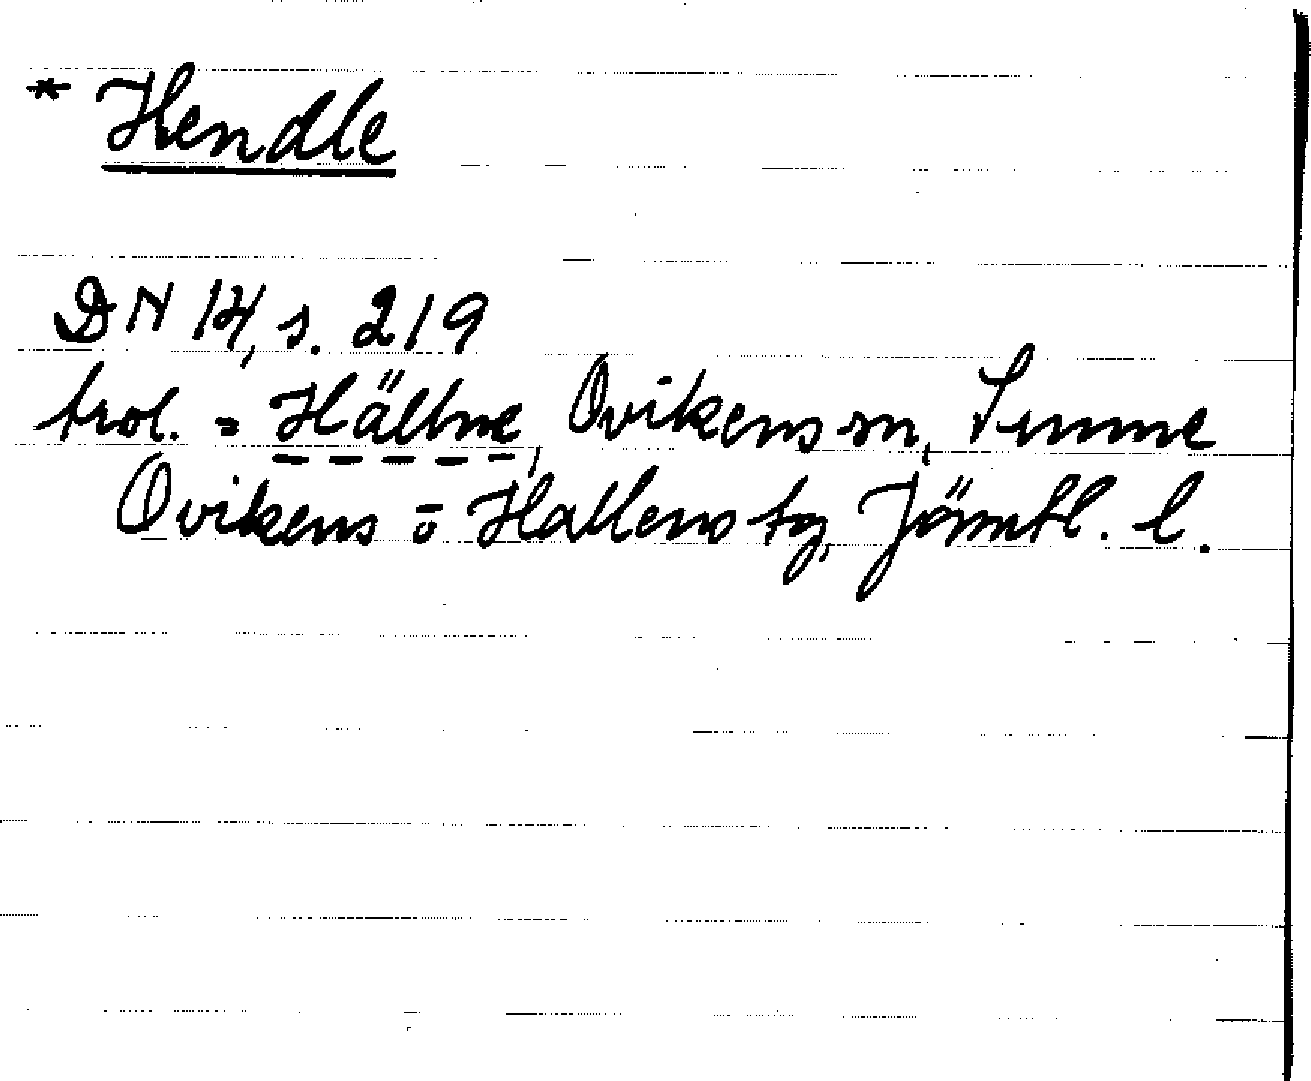 * Hendle
DN 14, s. 219
trol. = Hällne, Ovikens sn, Sunne
Ovikens o Hallens tg, Jämtl. l.